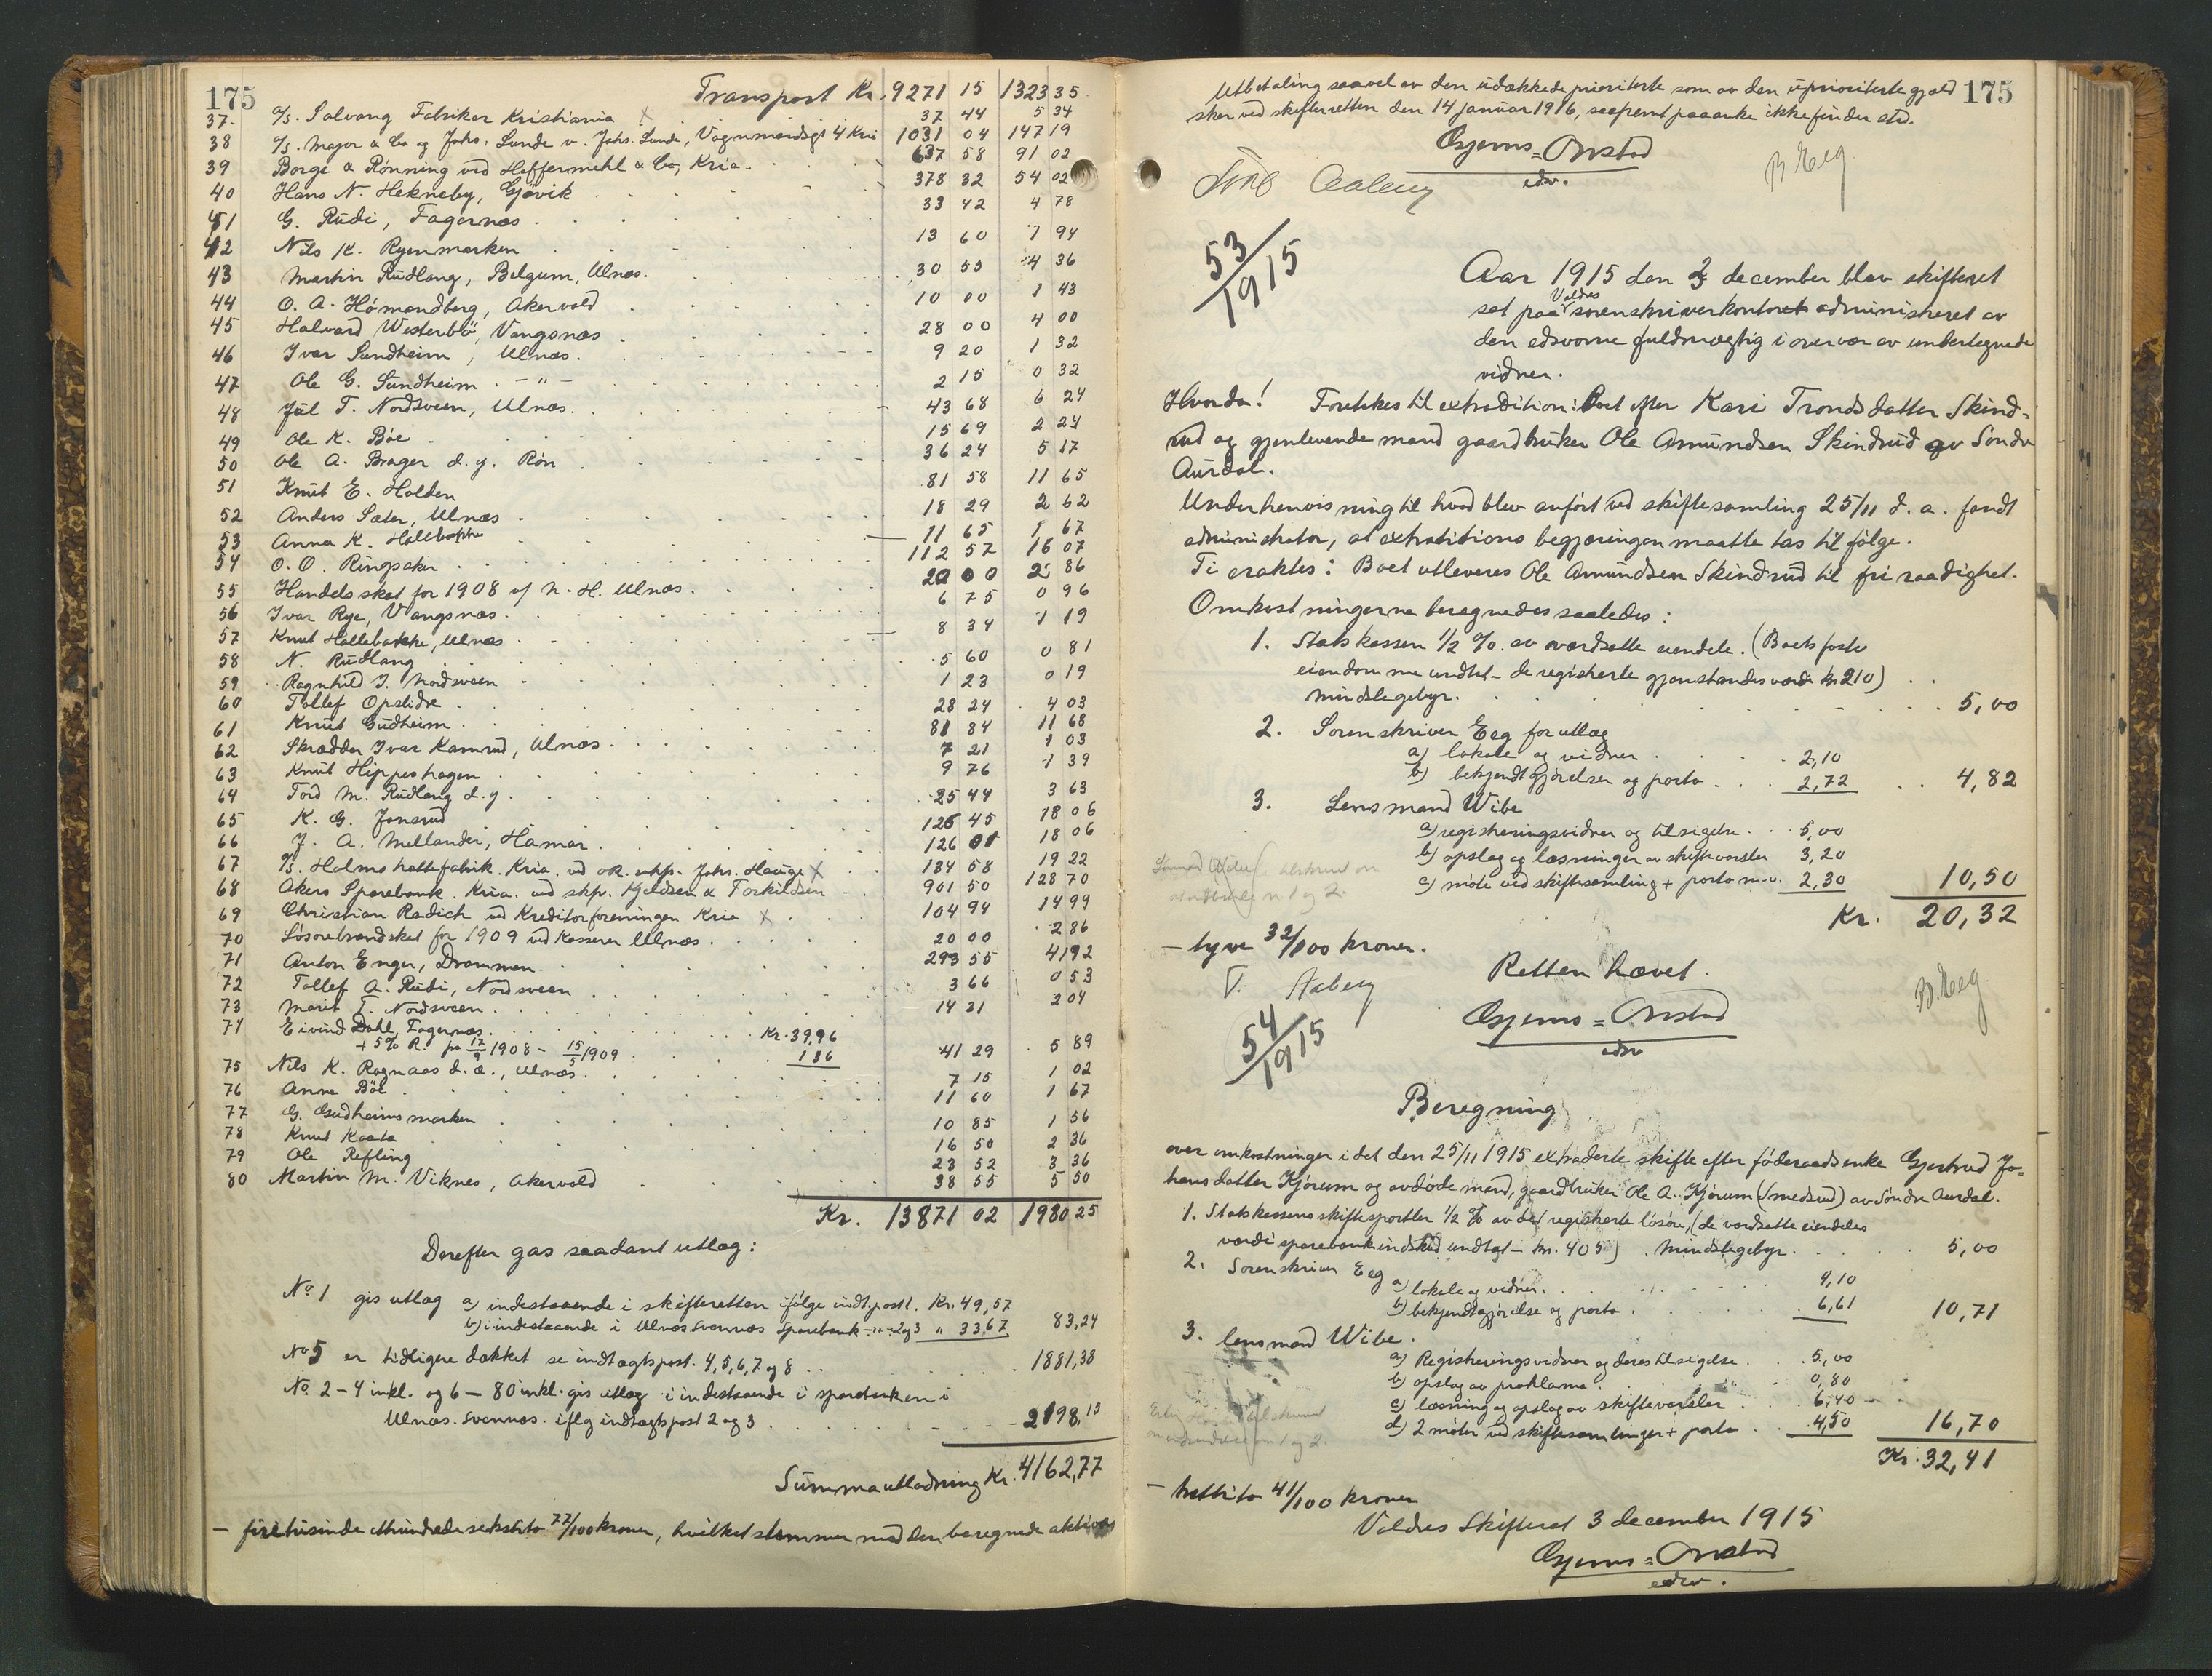 175
Transport Kr. 9271 15 1323 35
37. A/s. Salvang Fabriker Kristiania X 37 44 5 34
38 A/s. Major & Co og Johs. Lunde v. Johs. Lunde, Vognmandsgt 4 Kria 1031 04 147 19
39 Borge & Rønning ved Heffermehl & Co, Kria. 637 58 91 02
40 Hans N. Hekneby, Gjøvik 378 32 54 02
41 G. Rudi, Fagernæs 33 42 4 78
42 Nils K. Ryenmarken 13 60 1 94
43 Martin Rudlang, Belgum, Ulnæs. 30 55 4 36
44 O. A. Hømandberg, Akervold 10 00 1 43
45 Halvard Westerbø, Vangsnæs 28 00 4 00
46 Ivar Sundheim, Ulnæs. 9 20 1 32
47 Ole G. Sundheim - " - 2 15 0 32
48 Jul T. Nordsveen, Ulnæs. 43 68 6 24
49 Ole K. Bøe 15 69 2 24
50 Ole A. Brager d.y. Røn 36 24 5 17
51 Knut E. Holden 81 58 11 65
52 Anders Sæter, Ulnæs 18 29 2 62
53 Anna K. Hallbakke 11 65 1 67
54 O. O. Ringsaker 112 57 16 07
55 Handelsskat for 1908 N. H. Ulnæs. 20 00 2 86
56 Ivar Rye, Vangsnæs 6 75 0 96
57 Knut Hallebakke, Ulnæs 8 34 1 19
58 N. Rudlang 5 60 0 81
59 Ragnhild J. Nordsveen 1 23 0 19
60 Tollef Opslidre 28 24 4 03
61 Knut Gudheim 81 84 11 68
62 Skrædder Ivar Kamrud, Ulnæs 7 21 1 03
63 Knut Hippeshagen 9 76 1 39
64 Tord M. Rudlang d.y. 25 44 3 63
65 K. G. Jonsrud 126 45 18 06
66 J. A. Mellander, Hamar 126 01 18 06
67 A/s. Holms hattefabrik. Kria. ved oR. skfr. Johs. Hauge X 134 58 19 22
68 Akers Sparebank. Kria. ved skfr. Kjeldsen & Torkildsen 901 50 128 70
69 Christian Radich ved Kreditorforeningen Kria X 104 94 14 99
70 Løsørebrandskat for 1909 ved Kasserer Ulnæs 20 00 2 86
71 Anton Enger, Drammen 293 55 41 92
72 Tollef A. Rudi, Nordsveen 3 66 0 53
73 Marit T. Nordsveen 14 31 2 04
74 Eivind Dahl, Fagernæs Kr. 39,96
+ 5% R. fra 17/9 1908 - 15/5 1909 1 36 41 29 5 89
75 Nils K. Rognaas d. æ., Ulnæs. 7 15 1 02
76 Anne Bøe 11 60 1 67
77 G. Gudheimsmarken 10 85 1 56
78 Knut Kaata 16 50 2 36
79 Ole Refling 23 52 3 36
80 Martin M. Viknes, Akervold 38 55 5 50
Kr. 13871 02 1980 25
Derefter gas saadant utlæg:
No 1 gis utlæg a) indestaaende i skifteretten ifølge indt. post 1. Kr. 49,57
b) indestaaende i Ulnæs Svennæs Sparebank - " - 2 og 3 " 33,67 83,24
No 5 er tidligere dækket se indtægtspost. 4, 5, 6, 7 og 8 1881,38
No. 2 - 4 inkl. og 6 - 80 inkl. gis utlæg i indestaaende i sparebanken i
Ulnæs. Svennæs. iflg indtægtspost 2 og 3 2198,15
Summa utlodning Kr. 4162,77
- firetusinde ethundrede sekstito 77/100 kroner, hvilket stemmer med den beregnede aktiva
175
Utbetaling saavel av den udækkede prioriterte som av den uprioriterte gjæld
sker ved skifteretten den 14 januar 1916, saafremt paaanke ikke finder sted.
Gsjems=Onstad
edsv.
Aaberg
B Eeg
53/1915
Aar 1915 den 3 december blev skifteret
sat paa Valdres sorenskriverkontoret administreret av
den edsvorne fuldmægtig i overvær av undertegnede
vidner.
Hvorda! Foretokes til extradition: Boet efter Kari Trondsdatter Skind-
rud og gjenlevende mand gaardbruker Ole Amundsen Skindrud av Søndre
Aurdal.
Under henvisning til hvad blev anført ved skiftesamling 25/11 d. a. fandt
administrator, at extraditions begjæringen maatte tas til følge.
Ti eraktes: Boet utleveres Ole Amundsen Skindrud til fri raadighet.
Omkostningerne beregnedes saaledes:
1. Statskassen 1/2 %. av værdsatte eiendele. (Boets faste
eiendomme undtat - de registrerte gjenstandes værdi kr 210)
mindstegebyr. 5,00
2. Sorenskriver Eeg for utlæg
a) lokale og vidner 2,10
b) bekjendtgjørelser og porto 2,72 4,82
3. Lensmand Wibe
a) registreringsvidner og tilsigelse 5,00
b) opslag og læsninger av skiftevarsler 3,20
c) møte ved skiftesamling + porto m.v. 2,30 10,50
Kr. 20,32
- tyve 32/100 kroner.
Retten hævet.
T. Aaberg
B. Eeg
Gsjems=Onstad
edsv
54/1915
Beregning
over omkostninger i det den 25/11 1915 extraderte skifte efter føderaadsenke Gjertrud Jo-
hansdatter Kjørum og avdøde mand, gaardbruker Ole A. Kjørum (Smedsrud) av Søndre Aurdal.
1. Statskassens skiftesportler 1/2 % av det registrerte løsøre, (de værdsatte eiendeles
værdi sparebankindskud undtat - kr. 405) . Mindstegebyr 5,00
2. Sorenskriver Eeg a) lokale og vidner. 4,10
b) bekjendtgjørelse og porto 6,61 10,71
3. lensmand Wibe.
a) Registreringsvidner og deres tilsigelse 5,00
b) opslag av proklama 0,80
c) læsning og opslag av skiftevarsler 6,40
d) 2 møter ved skiftesamlinger + porto 4,50 16,70
Kr. 32,41
- trettito 41/100 kroner
Valdres Skifteret 3 december 1915
Gsjems=Onstad
edsv.